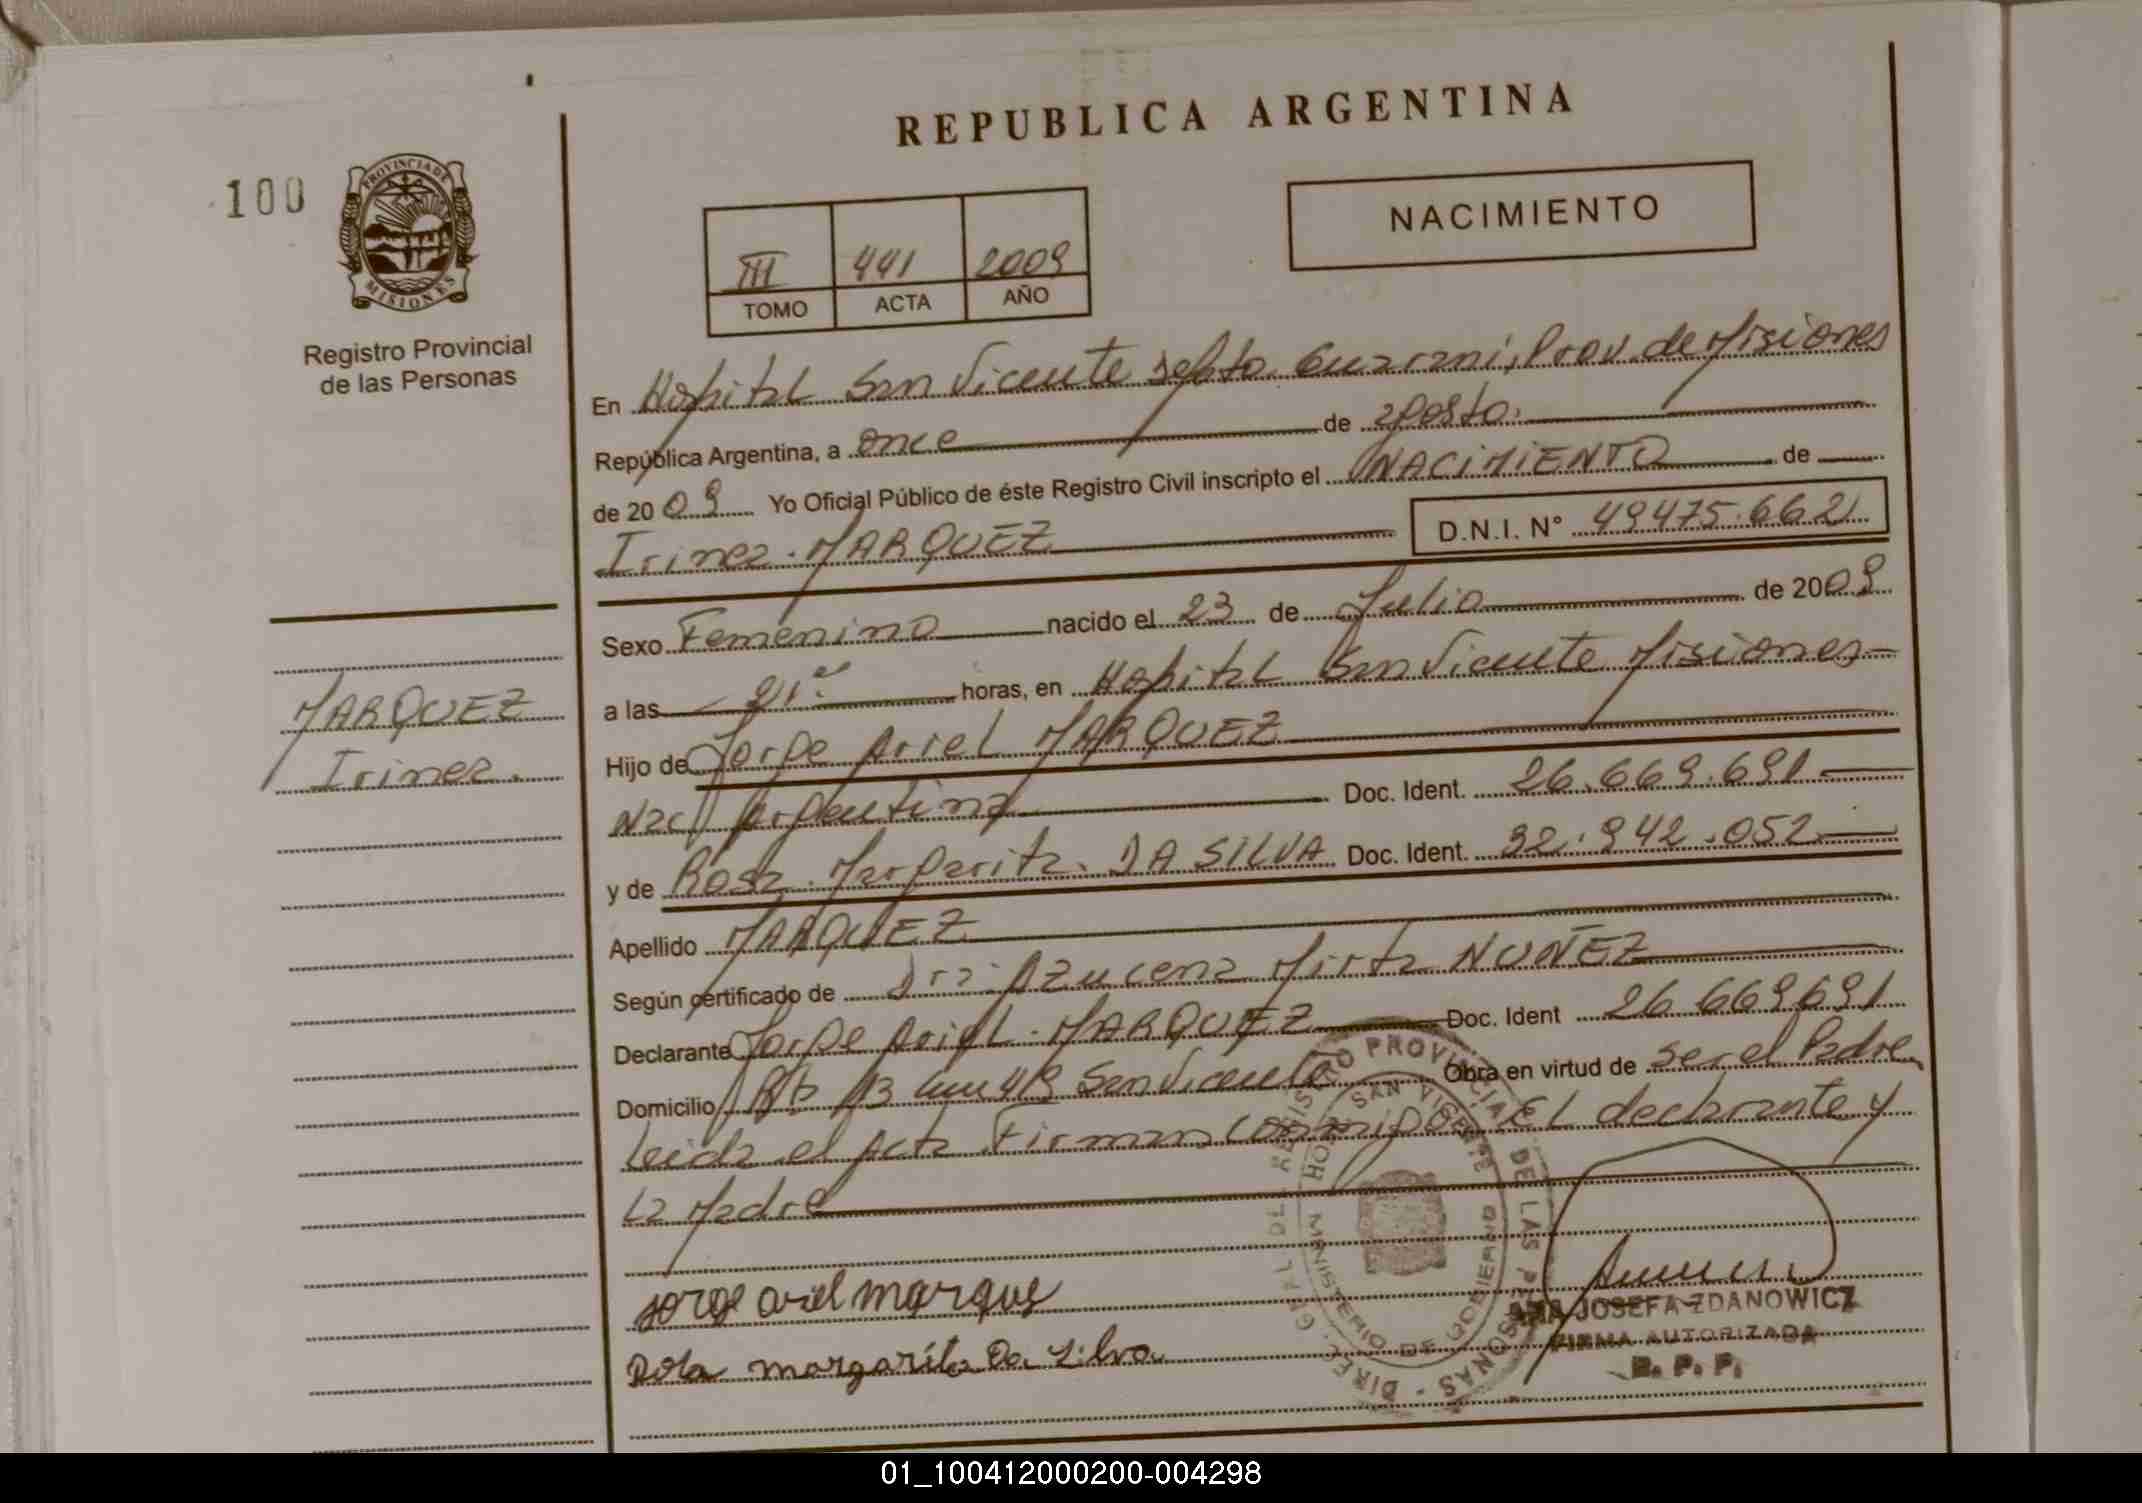 REPUBLICA ARGENTINA
100
PROVINCIA DE
MISIONES
Registro Provincial
de las Personas
NACIMIENTO
III 441 2009
TOMO ACTA AÑO
En Hospital San Vicente Depto. Guarani, Prov. de Misiones
República Argentina, a once de agosto.
de 2009 Yo Oficial Público de éste Registro Civil inscripto el NACIMIENTO de
Irinea. MARQUEZ D.N.I. N° 49475.662
Sexo Femenino nacido el 23 de Julio de 2009
a las 21 horas, en Hospital San Vicente Misiones
MARQUEZ
Irinea.
Hijo de Jorge Ariel MARQUEZ
Nac. Argentina Doc. Ident. 26.669.691
y de Rosa Margarita. DA SILVA Doc. Ident. 32.942.052
Apellido MARQUEZ
Según certificado de Dra. Azucena Mirta NUÑEZ
Declarante Jorge Ariel. MARQUEZ Doc. Ident 26 669691
Domicilio San Vicente Obra en virtud de ser el Padre
Leida el Acta Firman conmigo El declarante y
La Madre
jorge ariel marques
Rosa margarita Da Silva
DIREC. GRAL DEL REGISTRO PROVINCIAL DE LAS PERSONAS
MINISTERIO DE GOBIERNO
SAN VICENTE
ANA JOSEFA ZDANOWICZ
FIRMA AUTORIZADA
R. P. P.
01_100412000200-004298